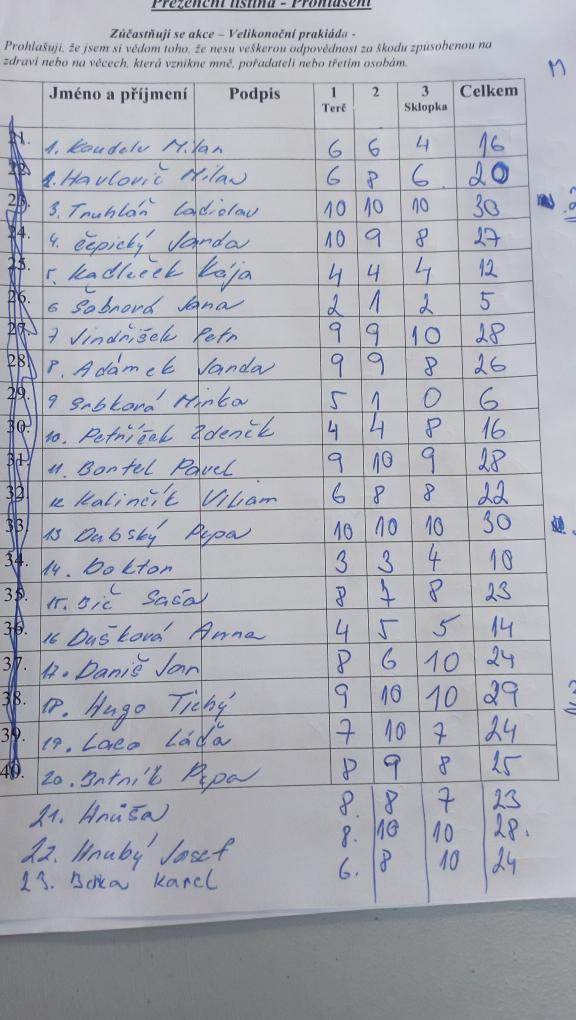 Prezenční listina - Prohlášení
Zúčastňuji se akce – Velikonoční prakiáda -
Prohlašuji, že jsem si vědom toho, že nesu veškerou odpovědnost za škodu způsobenou na
zdraví nebo na věcech, která vznikne mně, pořadateli nebo třetím osobám.
M
Jméno a příjmení Podpis 1 Terč 2 3 Sklopka Celkem
21. 1. Koudela Milan 6 6 4 16
22. 2. Havlovič Milan 6 8 6 20
23. 3. Truhlář Ladislav 10 10 10 30
24. 4. Čepický Vanda 10 9 8 27
25. 5. Kadleček Kája 4 4 4 12
26. 6 Šobnová Jana 2 1 2 5
27. 7 Jindřišek Petr 9 9 10 28
28. 8. Adámek Vanda 9 9 8 26
29. 9 Srbková Minka 5 1 0 6
30. 10. Petříček Zdeněk 4 4 8 16
31. 11. Bartel Pavel 9 10 9 28
32. 12 Kalinčík Viliam 6 8 8 22
33. 13 Dubský Pepa 10 10 10 30
34. 14. Doktor 3 3 4 10
35. 15. Bič Saša 8 7 8 23
36. 16 Dušková Anna 4 5 5 14
37. 17. Daniš Jan 8 6 10 24
38. 18. Hugo Tichý 9 10 10 29
39. 19. Laco Láďa 7 10 7 24
40. 20. Brtník Pepa 8 9 8 25
21. Hnůša 8. 8 7 23
22. Hrubý Josef 8. 10 10 28.
23. Karel 6. 8 10 24